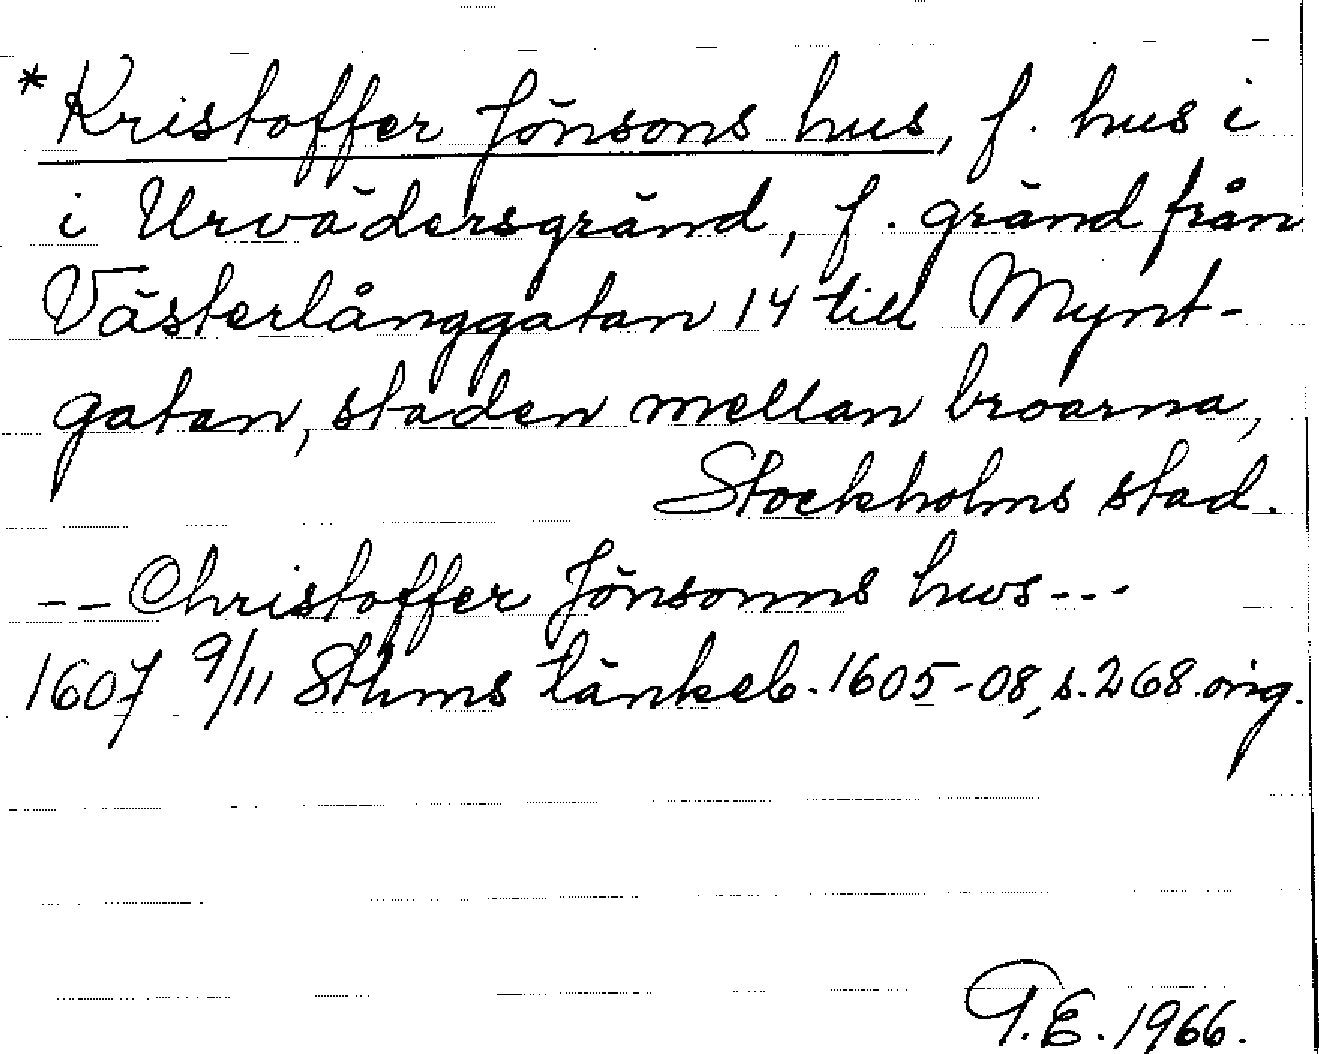 *Kristoffer Jönsons hus, f. hus i
i Urvädersgränd, f. gränd från
Västerlånggatan 14 till Mynt-
gatan, staden mellan broarna,
Stockholms stad.
-- Christoffer Jönsonns hws ---
1607 9/11 Sthms tänkeb. 1605-08, s. 268. orig.
G.E. 1966.